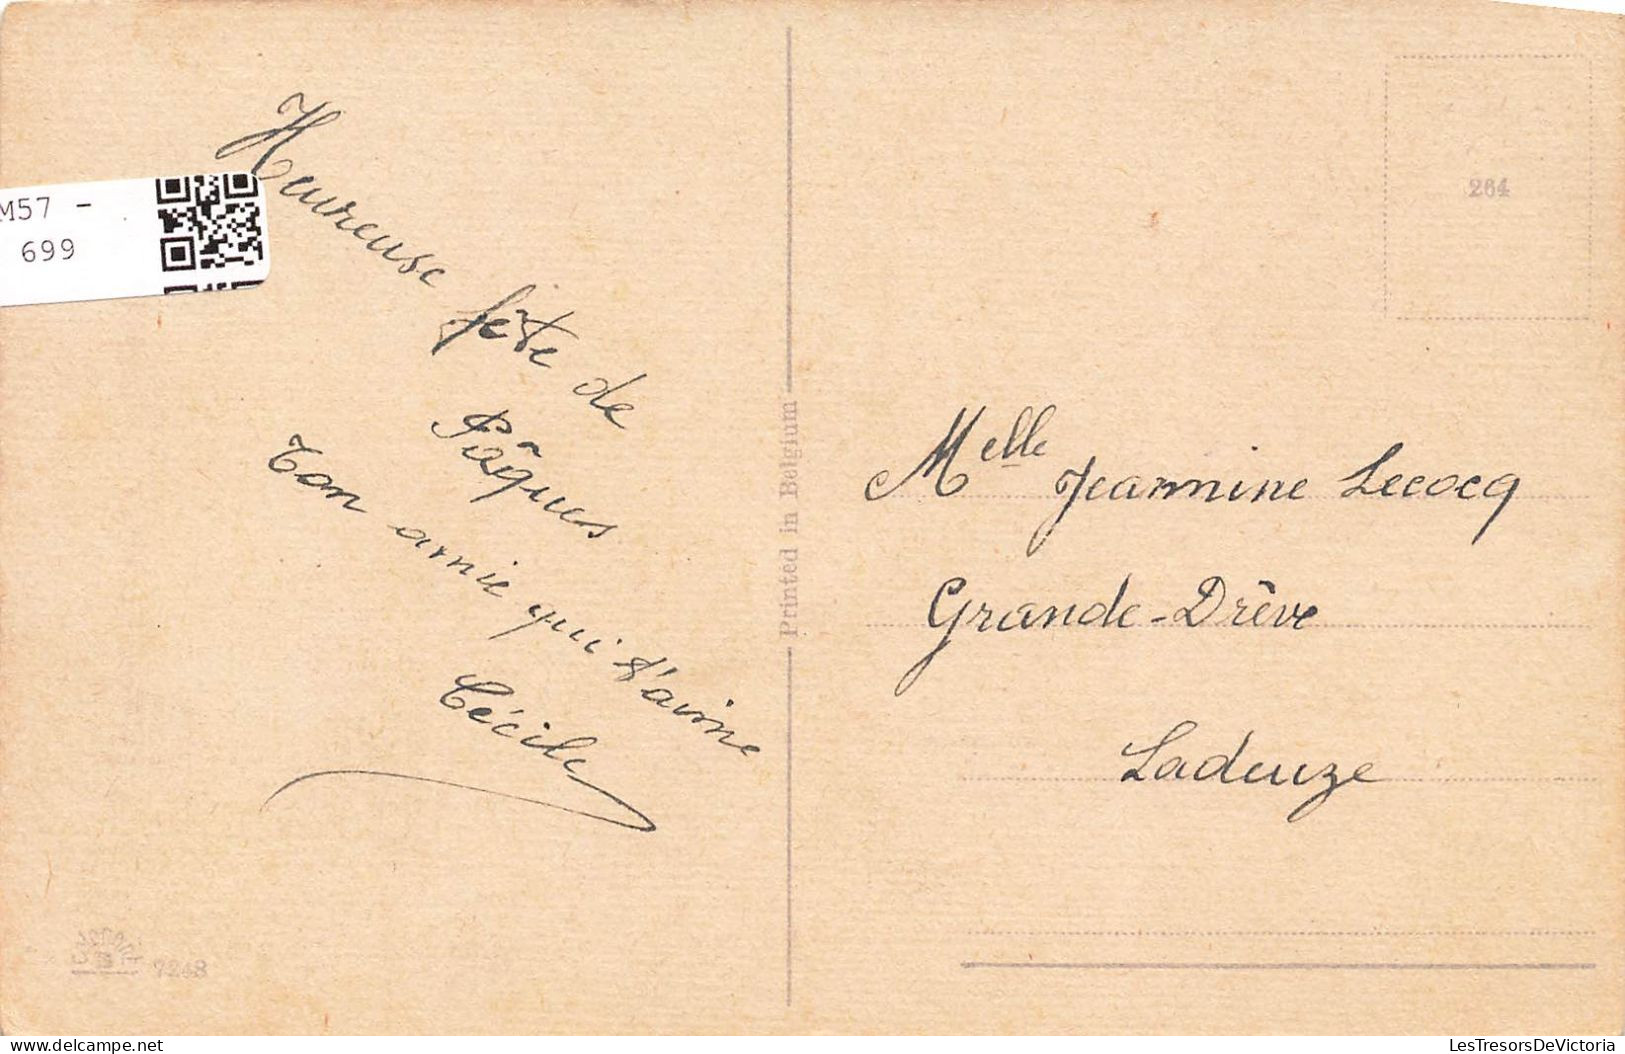 M57 -
699
Heureuse fête de
Pâques
Ton amie qui t'aime
Cécile
Printed in Belgium
264
Melle Jeannine Lecocq
Grande-Drève
Ladeuze
7248
Delcampe.net
LesTresorsDeVictoria